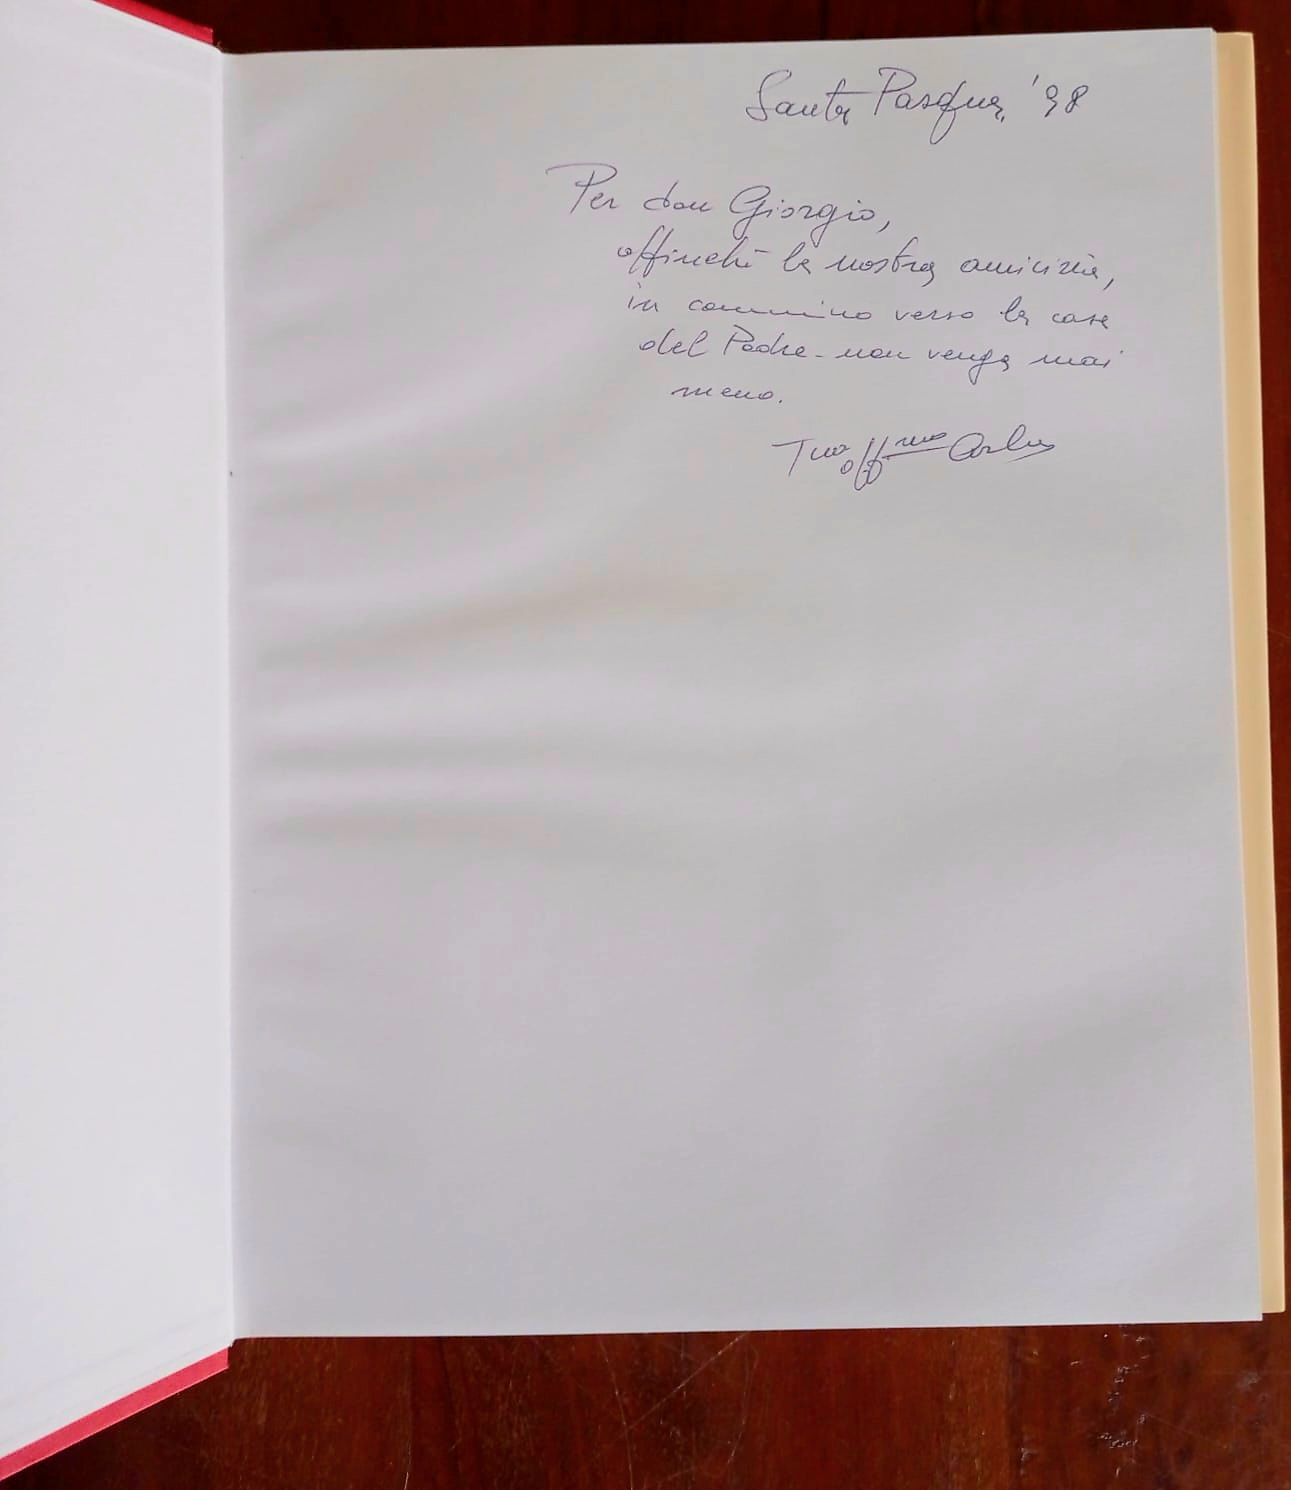 Santa Pasqua '98
Per don Giorgio,
affinché la nostra amicizia,
in cammino verso la casa
del Padre - non venga mai
meno.
Tuo aff.mo Carlo